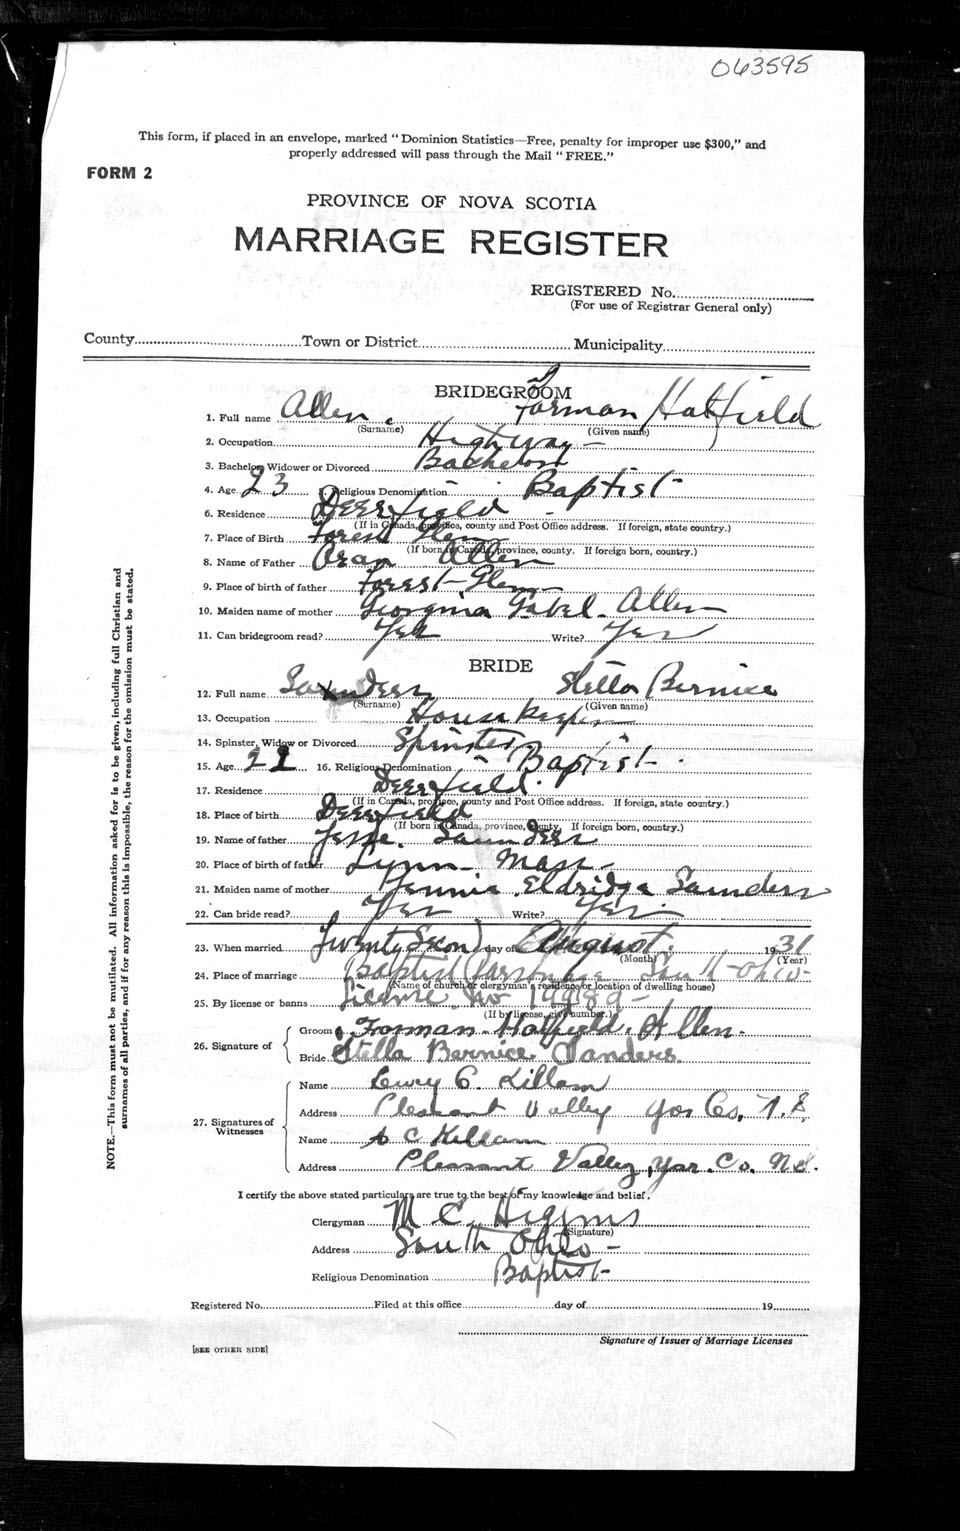 063595
This form, if placed in an envelope, marked "Dominion Statistics—Free, penalty for improper use $300," and
properly addressed will pass through the Mail "FREE."
FORM 2
PROVINCE OF NOVA SCOTIA
MARRIAGE REGISTER
REGISTERED No.
(For use of Registrar General only)
County Town or District Municipality
BRIDEGROOM
1. Full name Allen Forman Hatfield
(Surname) (Given name)
2. Occupation Highway
3. Bachelor, Widower or Divorced Bachelor
4. Age 23 5. Religious Denomination Baptist
6. Residence Deerfield
(If in Canada, province, county and Post Office address. If foreign, state country.)
7. Place of Birth Forest Glen
(If born in Canada, province, county. If foreign born, country.)
8. Name of Father Allen
9. Place of birth of father Forest Glen
10. Maiden name of mother Georgina Allen
11. Can bridegroom read? Yes Write? Yes
BRIDE
12. Full name Saunders Stella Bernice
(Surname) (Given name)
13. Occupation Housekeeper
14. Spinster, Widow or Divorced Spinster
15. Age 16. Religious Denomination Baptist
17. Residence Deerfield
(If in Canada, province, county and Post Office address. If foreign, state country.)
18. Place of birth Deerfield
(If born in Canada, province, county. If foreign born, country.)
19. Name of father Jesse Saunders
20. Place of birth of father Lynn Mass
21. Maiden name of mother Jennie Eldridge Saunders
22. Can bride read? Yes Write? Yes
23. When married Twenty Second day of August 1931
(Month) (Year)
24. Place of marriage Baptist Parsonage South Ohio
(Name of church or clergyman's residence or location of dwelling house)
25. By license or banns License No
(If by license, give number.)
26. Signature of
Groom Forman Hatfield Allen.
Bride Stella Bernice Sanders
27. Signatures of Witnesses
Name C. Killam
Address Pleasant Valley Yar Co, N.S.
Name A C Killam
Address Pleasant Valley, Yar. Co. N.S.
I certify the above stated particulars are true to the best of my knowledge and belief.
Clergyman M C Higgins
(Signature)
Address South Ohio
Religious Denomination Baptist
Registered No. Filed at this office day of 19
Signature of Issuer of Marriage Licenses
[SEE OTHER SIDE]
NOTE.—This form must not be mutilated. All information asked for is to be given, including full Christian and
surnames of all parties, and if for any reason this is impossible, the reason for the omission must be stated.